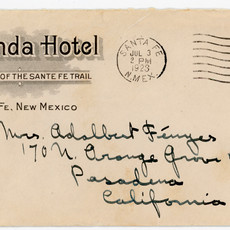 nda Hotel
OF THE SANTE FE TRAIL
Fe, New Mexico
SANTA FE
JUL 3
2 PM
1923
N. MEX.
Mrs. Adalbert Fenyes
170 N. Orange Grove
Pasadena
California